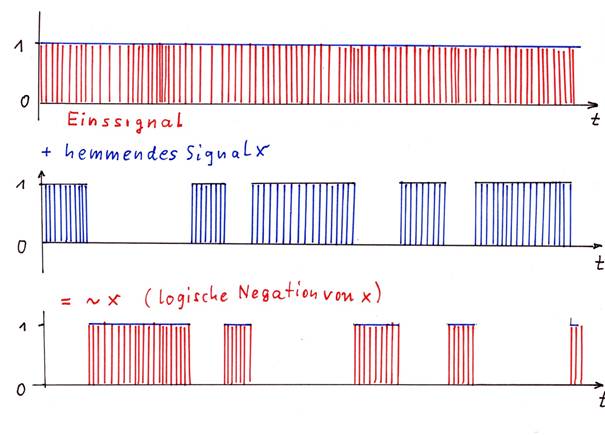 1
0
t
Einssignal
+ hemmendes Signal x
1
0
t
= ~ x (logische Negation von x)
1
0
t